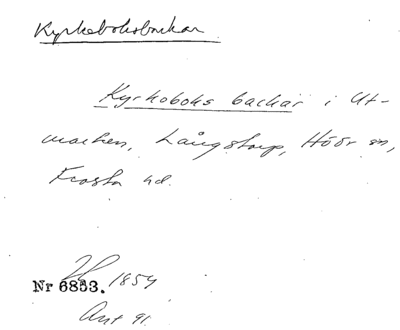 Kyrkoboksbackar
Kyrkoboks backar i Ut-
marken, Långstorp, Höör sn,
Frosta hd.
1854
Nr 6853.
Ant 91.